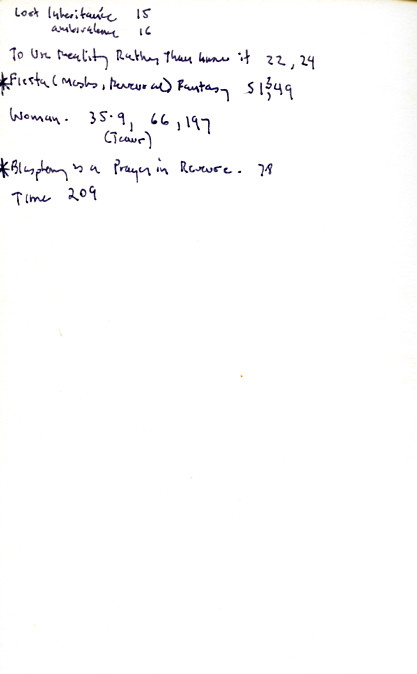 Lost Inheritance 15
ambivalence 16
To Use Reality Rather Than know it 22, 24
*Fiesta (Masks, Renewal) Fantasy 51, 49
Woman. 35-9, 66, 197
*Blasphemy is a Prayer in Reverse. 78
Time 209